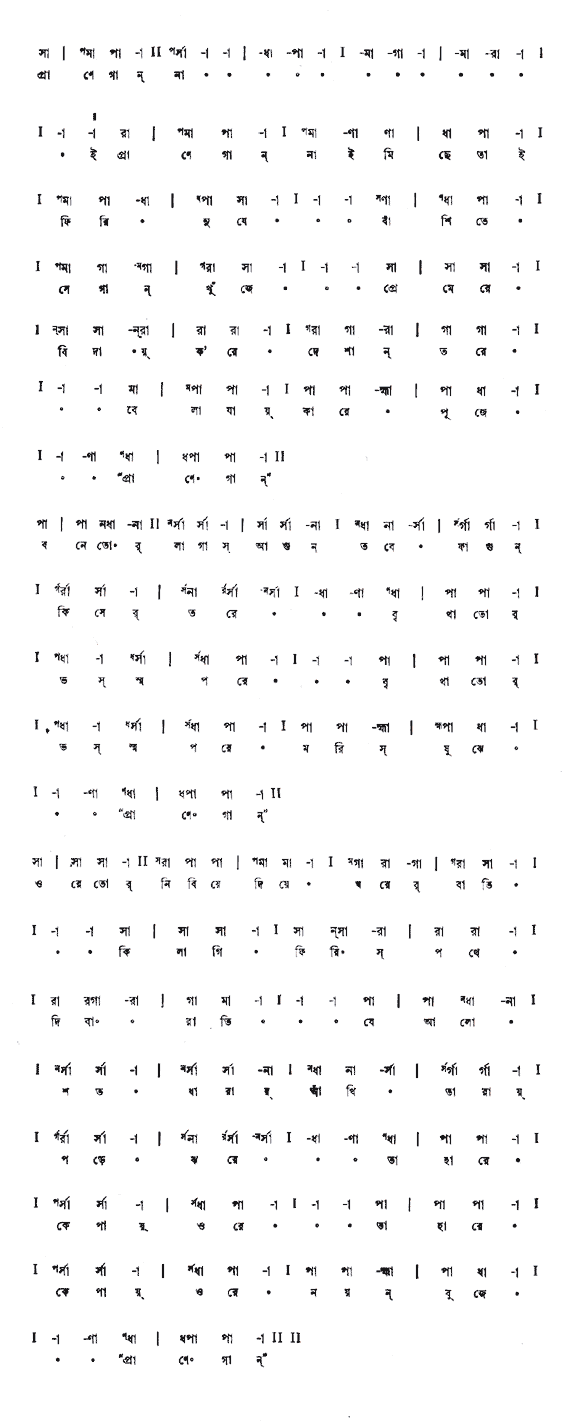 সা | ᵖমা পা -া II ᵖর্সা -া -া | -ধা -পা -া I -মা -গা -া | -মা -রা -া I
প্রা ণে গা ন্ না • • • ০ • • • • • • •
I -া -া রা | ᵖমা পা -া I ᵖমা -ণা ণা | ধা পা -া I
• ই প্রা ণে গা ন্ না ই মি ছে তা ই
I ᵖমা পা -ধা | ᵐপা সা -া I -া -া ᶳণা | ᵖধা পা -া I
ফি রি • যে • • ০ বাঁ শি তে •
I ᵖমা গা -ᵐগা | ᵍরা সা -া I -া -া সা | সা সা -া I
সে গা ন্ খুঁ জে • ০ • প্রে মে রে •
I ন্সা সা -ন্রা | রা রা -া I ᶳরা গা -রা | গা গা -া I
বি দা •য়্ ক' রে • দে শা ন্ ত রে •
I -া -া মা | ᵐপা পা -া I পা পা -হ্মা | পা ধা -া I
• • বে লা যা য়্ কা রে • পূ জে •
I -া -ণা ᵖধা | ধপা পা -া II
০ • “প্রা ণে• গা ন্”
পা | পা নধা -না II ᶰর্সা র্সা -া | র্সা র্সা -না I ᶰধা না -র্সা | র্সর্গা র্গা -া I
ব নে তো• র্ লা গা স্ আ গু ন্ ত বে • ফা গু ন্
I র্গর্রা র্সা -া | র্সনা র্রর্সা -ᶰর্সা I -ধা -ণা ᵖধা | পা পা -া I
কি সে র্ ত রে • • • বৃ থা তো র্
I ᵖধা -া ᵈর্সা | র্সধা পা -া I -া -া পা | পা পা -া I
ভ স্ ম প রে • • • বৃ থা তো র্
I ᵖধা -া ᵈর্সা | র্সধা পা -া I পা পা -হ্মা | হ্মপা ধা -া I
ভ স্ ম প রে • ম রি স্ যু ঝে ০
I -া -ণা ᵖধা | ধপা পা -া II
• ০ “প্রা ণে০ গা ন্”
সা | সা সা -া II ᶳরা পা পা | ᵖমা মা -া I ᵐগা রা -গা | ᵍরা সা -া I
ও রে তো র্ নি বি য়ে দি য়ে • ঘ রে র্ বা তি •
I -া -া সা | সা সা -া I সা ন্সা -রা | রা রা -া I
• • কি লা গি • ফি রি• স্ প থে •
I রা রগা -রা | গা মা -া I -া -া পা | পা ᶰধা -না I
দি বা০ ০ রা তি • • • যে আ লো •
I ᶰর্সা র্সা -া | ᶰর্সা র্সা -না I ᶰধা না -র্সা | র্সর্গা র্গা -া I
শ ত • ধা রা য়্ আঁ খি • তা রা য়্
I র্গর্রা র্সা -া | র্সনা র্রর্সা -ᶰর্সা I -ধা -ণা ᵖধা | পা পা -া I
প ড়ে • ঝ রে ০ • • তা হা রে •
I ᵖর্সা র্সা -া | র্সধা পা -া I -া -া পা | পা পা -া I
কে পা য়্ ও রে • • • তা হা রে •
I ᵖর্সা র্সা -া | র্সধা পা -া I পা পা -হ্মা | পা ধা -া I
কে পা য়্ ও রে • ন য় ন্ বু জে •
I -া -ণা ᵖধা | ধপা পা -া II II
• • “প্রা ণে০ গা ন্”